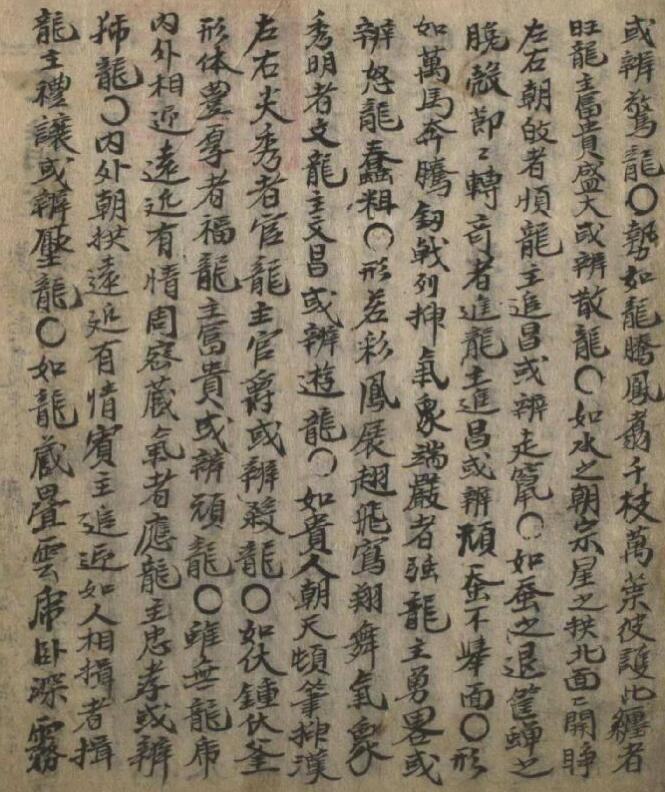 或辨驚龍〇勢如龍騰鳳翥千枝萬葉彼護此纏者
旺龍主冨貴盛大或辨散龍〇如水之朝宗星之拱北面〻開睜
左右朝的者順龍主進昌或辨走竄〇如蚕之退筐蟬之
脫殼節〻轉竒者進龍主進昌或辨頑蚕不舉面〇形
如萬馬奔騰釼戟列揷氣象端嚴者强龍主勇畧或
辨怒龍麄粗〇形若彩鳳展翅飛鸞翔舞氣象
秀明者文龍主文昌或辨遊龍〇如貴人朝天頓筆揷漢
左右尖秀者官龍主官爵或辨殺龍〇如伏鍾伏釜
形体豊享者福龍主冨貴或辨頑龍〇雖無龍席
内外相近遠近有情周密藏氣者應龍主忠孝或辨
狮龍〇内外朝拱遠近有情賓主進迎如人相揖者揖
龍主禮讓或辨壓龍〇如龍藏疊雲席臥深霧